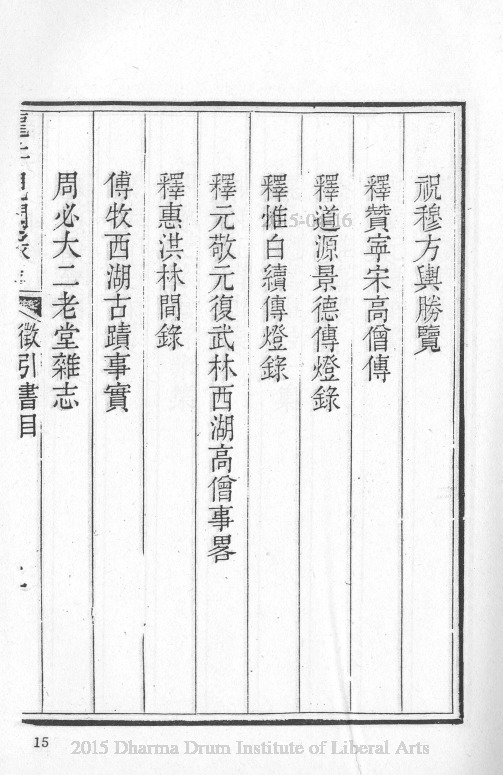 祝穆方輿勝覽
釋贊寧宋高僧傳
釋道源景德傳燈錄
釋惟白續傳燈錄
釋元敬元復武林西湖高僧事畧
釋惠洪林間錄
傅牧西湖古蹟事實
周必大二老堂雜志
徵引書目
15
2015 Dharma Drum Institute of Liberal Arts